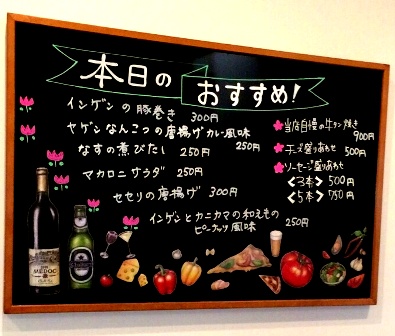 本日の
おすすめ!
インゲンの豚巻き 300円
ヤゲンなんこつの唐揚げカレー風味 250円
なすの煮びたし 250円
マカロニサラダ 250円
セセリの唐揚げ 300円
インゲンとカニカマの和えもの
ピーナッツ風味 250円
当店自慢の牛タン焼き
900円
チーズ盛りあわせ 500円
ソーセージ盛りあわせ
<3本> 500円
<5本> 750円
MEDOC